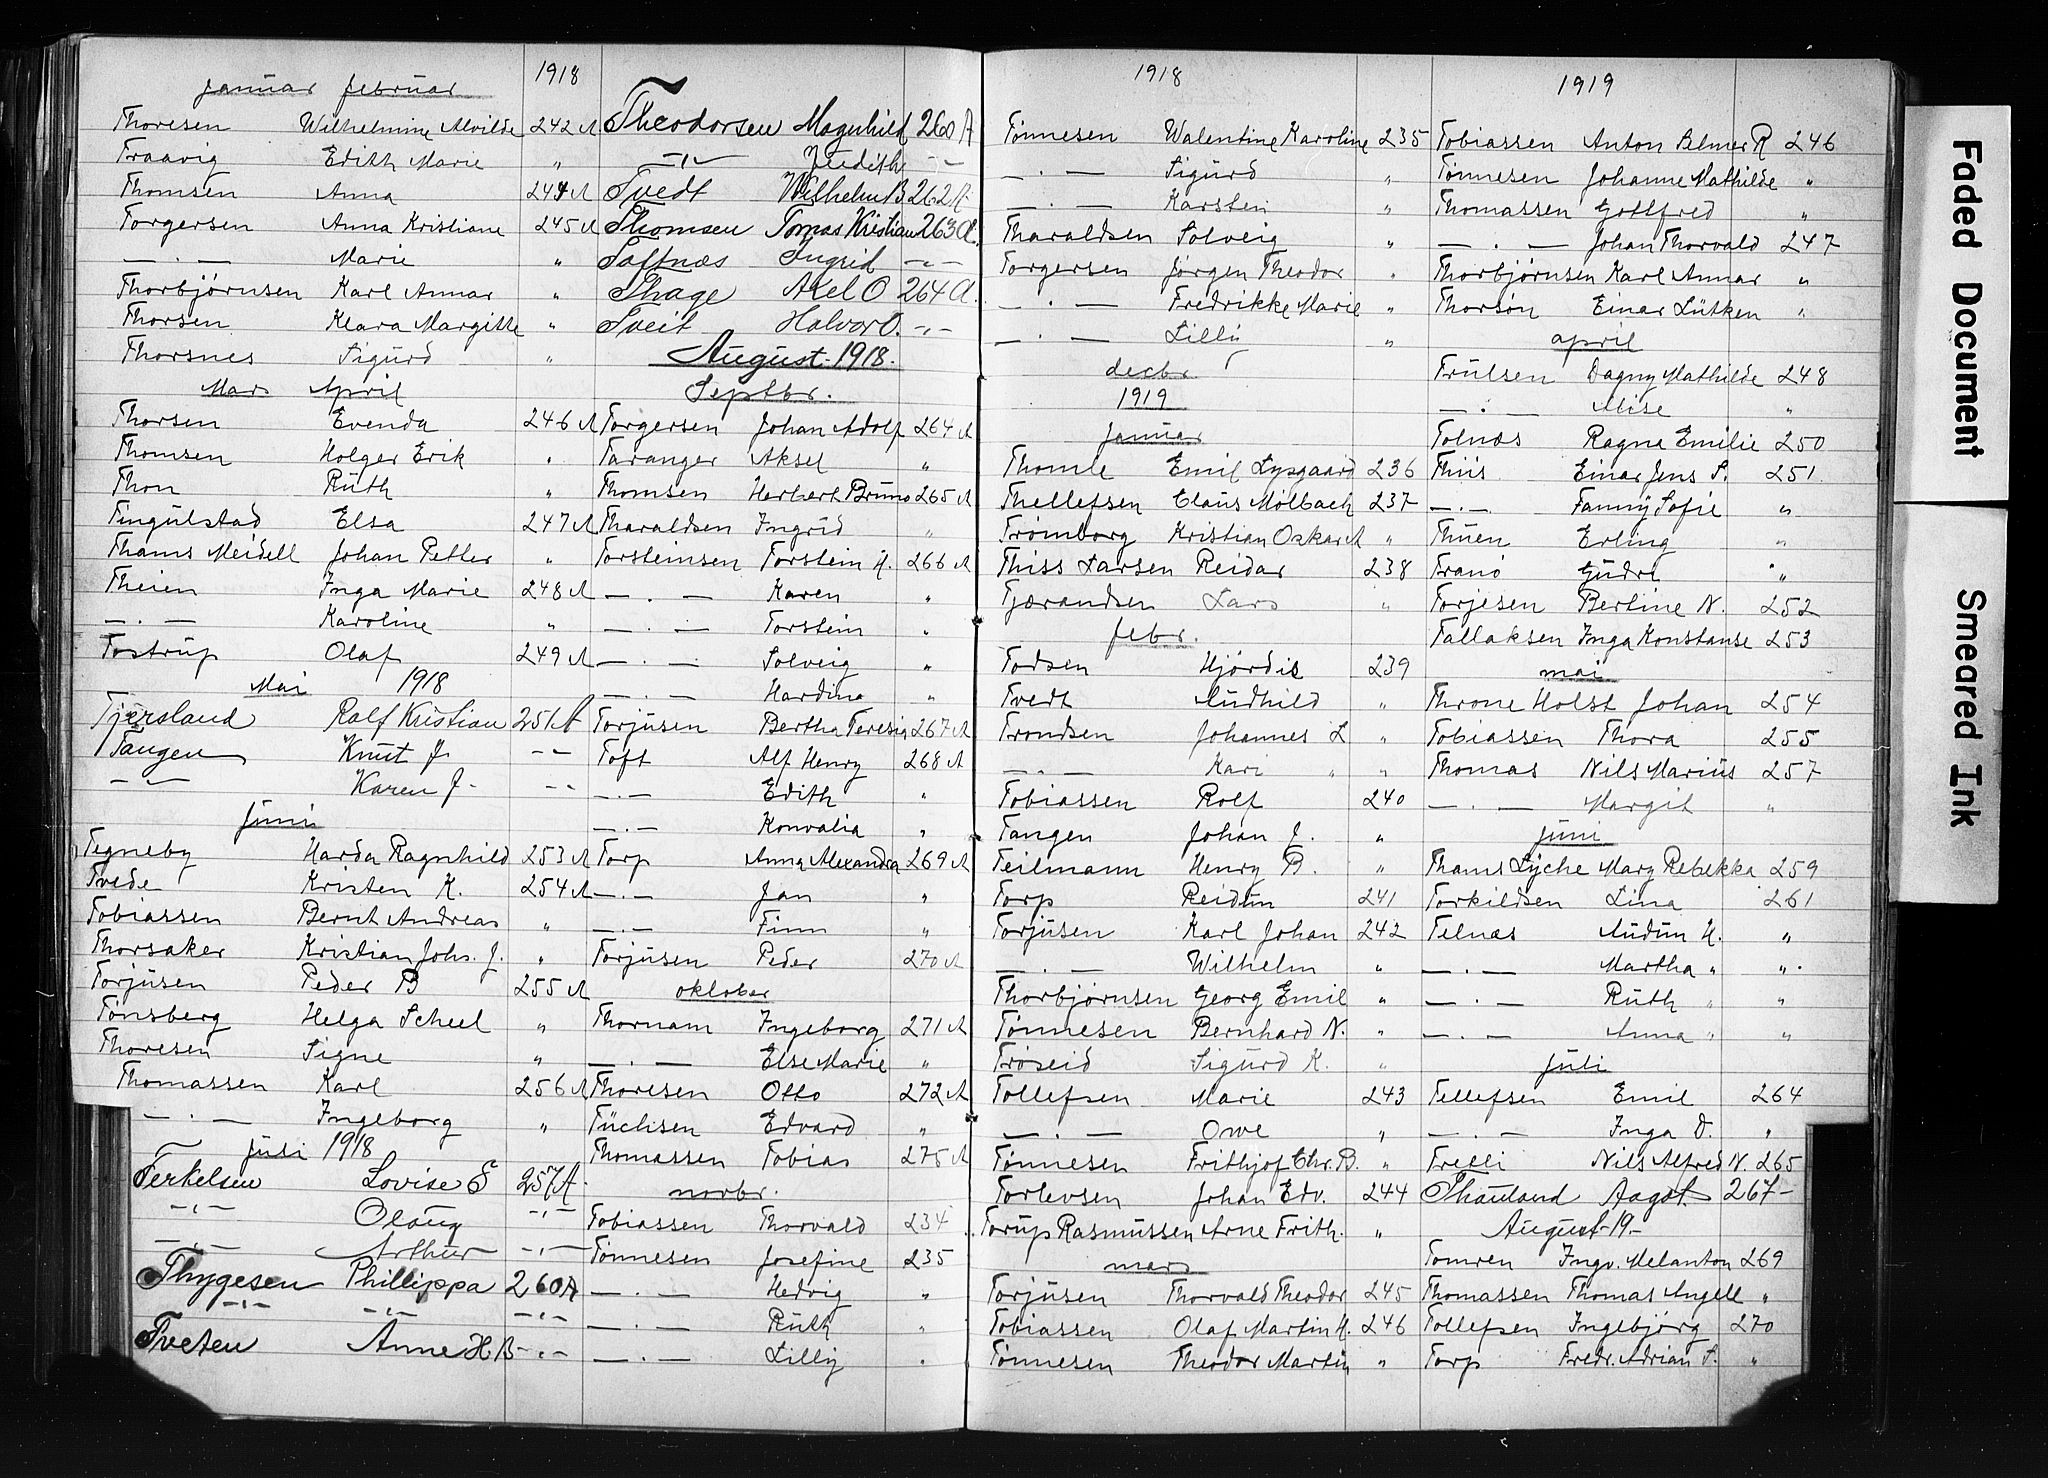 1918
januar februar
Thoresen Wilhelmine Alvilde 242 A
Traavig Edith Marie "
Thomsen Anna 244 A
Torgersen Anna Kristiane 245 A
— . — Marie "
Thorbjørnsen Karl Annar "
Thorsen Klara Margitte "
Thorsnes Sigurd "
Mars April
Thorsen Evenda 246 A
Thomsen Holger Erik "
Thon Ruth "
Tingulstad Elsa 247 A
Thams Meidell Johan Petter "
Theien Inga Marie 248 A
— . — Karoline "
Tostrup Olaf 249 A
Mai 1918
Tjersland Ralf Kristian 251 A
Tangen Knut J. -"-
-"- Karen J. -"-
Juni
Tegneby Harda Ragnhild 253 A
Tvede Kristen K. 254 A
Tobiassen Bernt Andreas "
Thorsaker Kristian Johs. J. "
Torjusen Peder B 255 A
Tønsberg Helga Scheel "
Thoresen Signe "
Thomassen Karl 256 A
— . — Ingeborg "
Juli 1918
Terkelsen Lovise E 257 A
-"- Olaug -"-
-"- Arthur -"-
Thygesen Phillippa 260 A
-"- -"- -"-
Tveten Anne H B -"-
Theodorsen Magnhild 260 A
-"- Judith -"-
Tvedt Wilhelm B 262 A
Thomsen Tomas Kristian 263 A.
Toftnæs Ingrid -"-
Thage Axel O 264 A.
Tveit Halvor O. -"-
August 1918.
Septbr.
Torgersen Johan Adolf 264 A
Taranger Aksel "
Thomsen Herbert Bruno 265 A
Tharaldsen Ingrid "
Torsteinsen Torstein H. 266 A
— . — Karen "
— . — Torstein "
— . — Solveig "
— . — Hardine "
Torjusen Bertha Teresia 267 A
Toft Alf Henry 268 A
— . — Edith "
— . — Konvalia "
Torp Anna Alexandra 269 A
— . — Jan "
— . — Finn "
Torjusen Peder 270 A
oktober
Thornam Ingeborg 271 A
— . — Else Marie "
Thoresen Otto 272 A
Tüchsen Edvard "
Thomassen Tobias 275 A
novbr.
Tobiassen Thorvald 234
Tønnesen Josefine 235
— . — Hedvig "
— . — Ruth "
— . — Lilly "
1918
Tønnesen Walentine Karoline 235
— . — Sigurd "
— . — Karsten "
Tharaldsen Solveig "
Torgersen Jørgen Theodor "
— . — Fredrikke Marie "
— . — Lilly "
decbr.
1919
januar
Thomle Emil Lysgaard 236
Thellefsen Claus Mølbach 237
Trømborg Kristian Oskar A "
Thiss Larsen Reidar 238
Tjærandsen Lars "
febr.
Todsen Hjørdis 239
Tvedt Audhild "
Trondsen Johannes L "
— . — Kari " "
Tobiassen Rolf 240
Tangen Johan J. "
Teilmann Henry B. "
Torp Reidun 241
Torjusen Karl Johan 242
— . — Wilhelm "
Thorbjørnsen Georg Emil "
Tønnesen Bernhard N. "
Trøseid Sigurd K. "
Tollefsen Marie 243
— . — Owe "
Tønnesen Frithjof Chr. B. "
Torlevsen Johan Edv. 244
Torup Rasmussen Arne Frith. "
mars
Torjusen Thorvald Theodor 245
Tobiassen Olaf Martin H. 246
Tønnesen Theodor Martin "
1919
Tobiassen Anton Elmer R 246
Tønnesen Johanne Mathilde "
Thomassen Gottfred "
— . — Johan Thorvald 247
Thorbjørnsen Karl Annar "
Thorsøn Einar Lütken "
april
Trulsen Dagny Mathilde 248
— . — Alise "
Tolnæs Ragna Emilie 250
Thiis Einar Jens S. 251
— . — Fanny Sofie "
Thuen Erling "
Tranø Gudri "
Torjesen Bertine N. 252
Tallaksen Inga Konstanse 253
mai
Throne Holst Johan 254
Tobiassen Thora 255
Thomas Nils Marius 257
— . — Margit "
juni
Thams Lyche Mary Rebekka 259
Torkildsen Lina 261
Telnæs Audun H. "
— . — Martha " "
— . — Ruth " "
— . — Anna " "
juli
Tellefsen Emil 264
— . — Inga D. "
Tretli Nils Alfred N. 265
Thauland Aagot 267-
August-19-
Tomren Ingv. Melanton 269
Thomassen Thomas Angell "
Tollefsen Ingebjørg 270
Torp Fredr. Adrian S. "
Faded Document
Smeared Ink